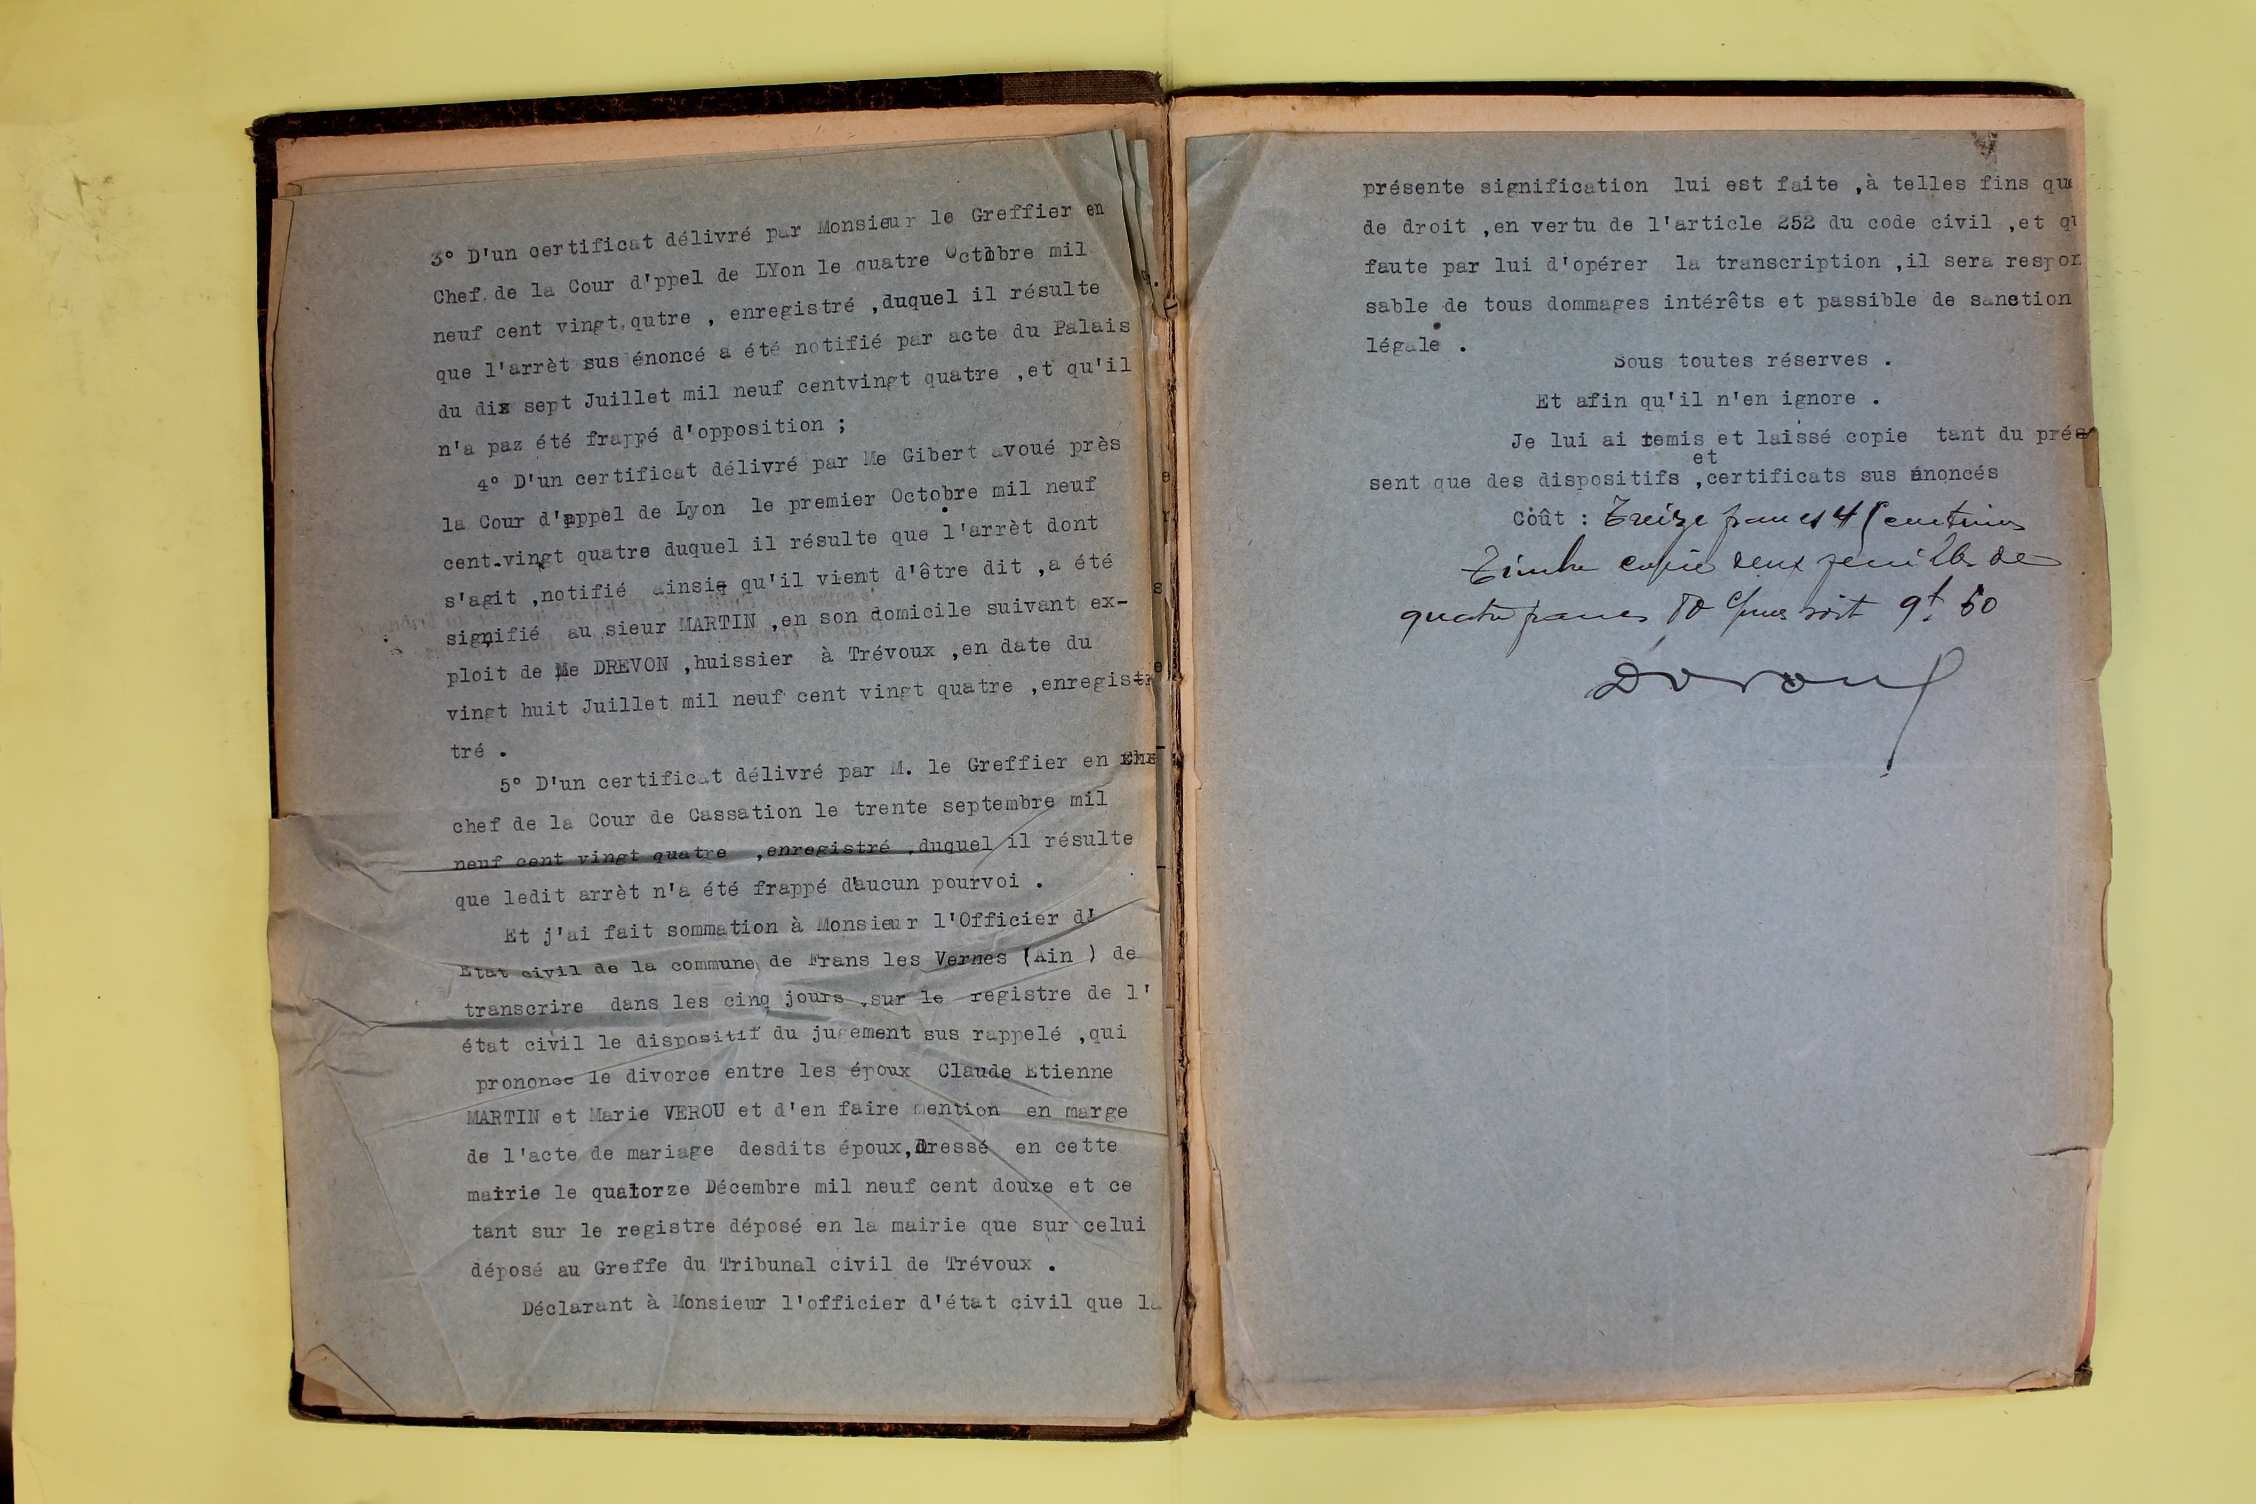 3° D'un certificat délivré par Monsieur le Greffier en
Chef de la Cour d'ppel de LYon le quatre Octobre mil
neuf cent vingt qutre , enregistré ,duquel il résulte
que l'arrèt sus énoncé a été notifié par acte du Palais
du dix sept Juillet mil neuf centvingt quatre ,et qu'il
n'a paz été frappé d'opposition ;
4° D'un certificat délivré par Me Gibert avoué près
la Cour d'appel de Lyon le premier Octobre mil neuf
cent-vingt quatre duquel il résulte que l'arrèt dont
s'agit ,notifié ainsi qu'il vient d'être dit ,a été
signifié au sieur MARTIN ,en son domicile suivant ex-
ploit de Me DREVON ,huissier à Trévoux ,en date du
vingt huit Juillet mil neuf cent vingt quatre ,enregistr
tré .
5° D'un certificat délivré par M. le Greffier en Che
chef de la Cour de Cassation le trente septembre mil
neuf cent vingt quatre ,enregistré ,duquel il résulte
que ledit arrèt n'a été frappé d'aucun pourvoi .
Et j'ai fait sommation à Monsieur l'Officier d'
Etat civil de la commune de Frans les Vernes (Ain ) de
transcrire dans les cinq jours ,sur le registre de l'
état civil le dispositif du jugement sus rappelé ,qui
prononce le divorce entre les époux Claude Etienne
MARTIN et Marie VEROU et d'en faire mention en marge
de l'acte de mariage desdits époux,dressé en cette
mairie le quatorze Décembre mil neuf cent douze et ce
tant sur le registre déposé en la mairie que sur celui
déposé au Greffe du Tribunal civil de Trévoux .
Déclarant à Monsieur l'officier d'état civil que la
présente signification lui est faite ,à telles fins que
de droit ,en vertu de l'article 252 du code civil ,et qu
faute par lui d'opérer la transcription ,il sera respon
sable de tous dommages intérêts et passible de sanction
légale .
Sous toutes réserves .
Et afin qu'il n'en ignore .
Je lui ai remis et laissé copie tant du pré
et
sent que des dispositifs ,certificats sus énoncés
Coût : Treize francs 45 centimes
Timbre copie deux feuilles de
quatre francs 50 soit 9f 50